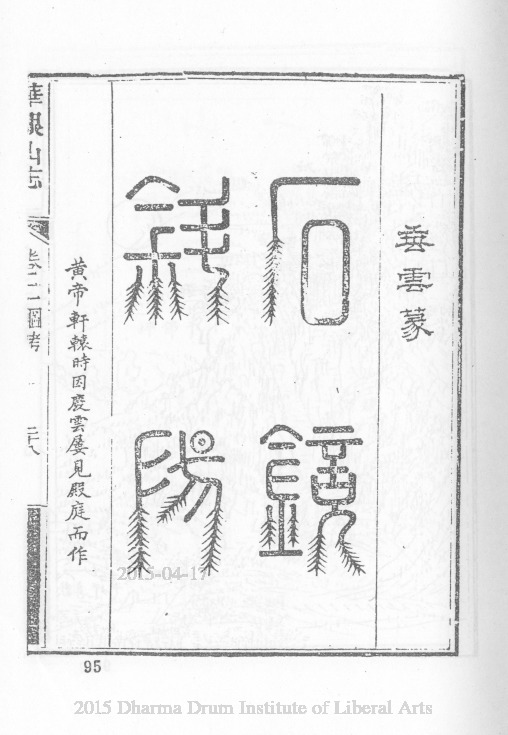 垂雲篆
石鏡
斜陽
黄帝軒轅時因慶雲屢見殿庭而作
華銀山志
圖考
95
2015-04-17
2015 Dharma Drum Institute of Liberal Arts